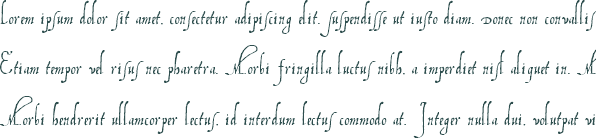 Lorem ipsum dolor sit amet, consectetur adipiscing elit. Suspendisse ut justo diam. Donec non convallis
Etiam tempor vel risus nec pharetra. Morbi fringilla luctus nibh, a imperdiet nisl aliquet in. M
Morbi hendrerit ullamcorper lectus, id interdum lectus commodo at. Integer nulla dui, volutpat vi